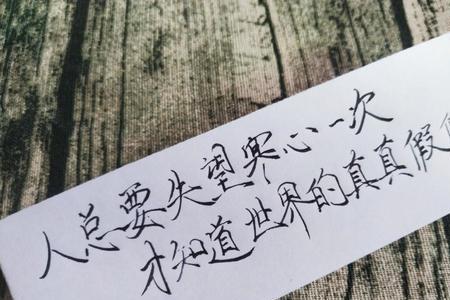 人总要失望寒心一次
才知道世界的真真假